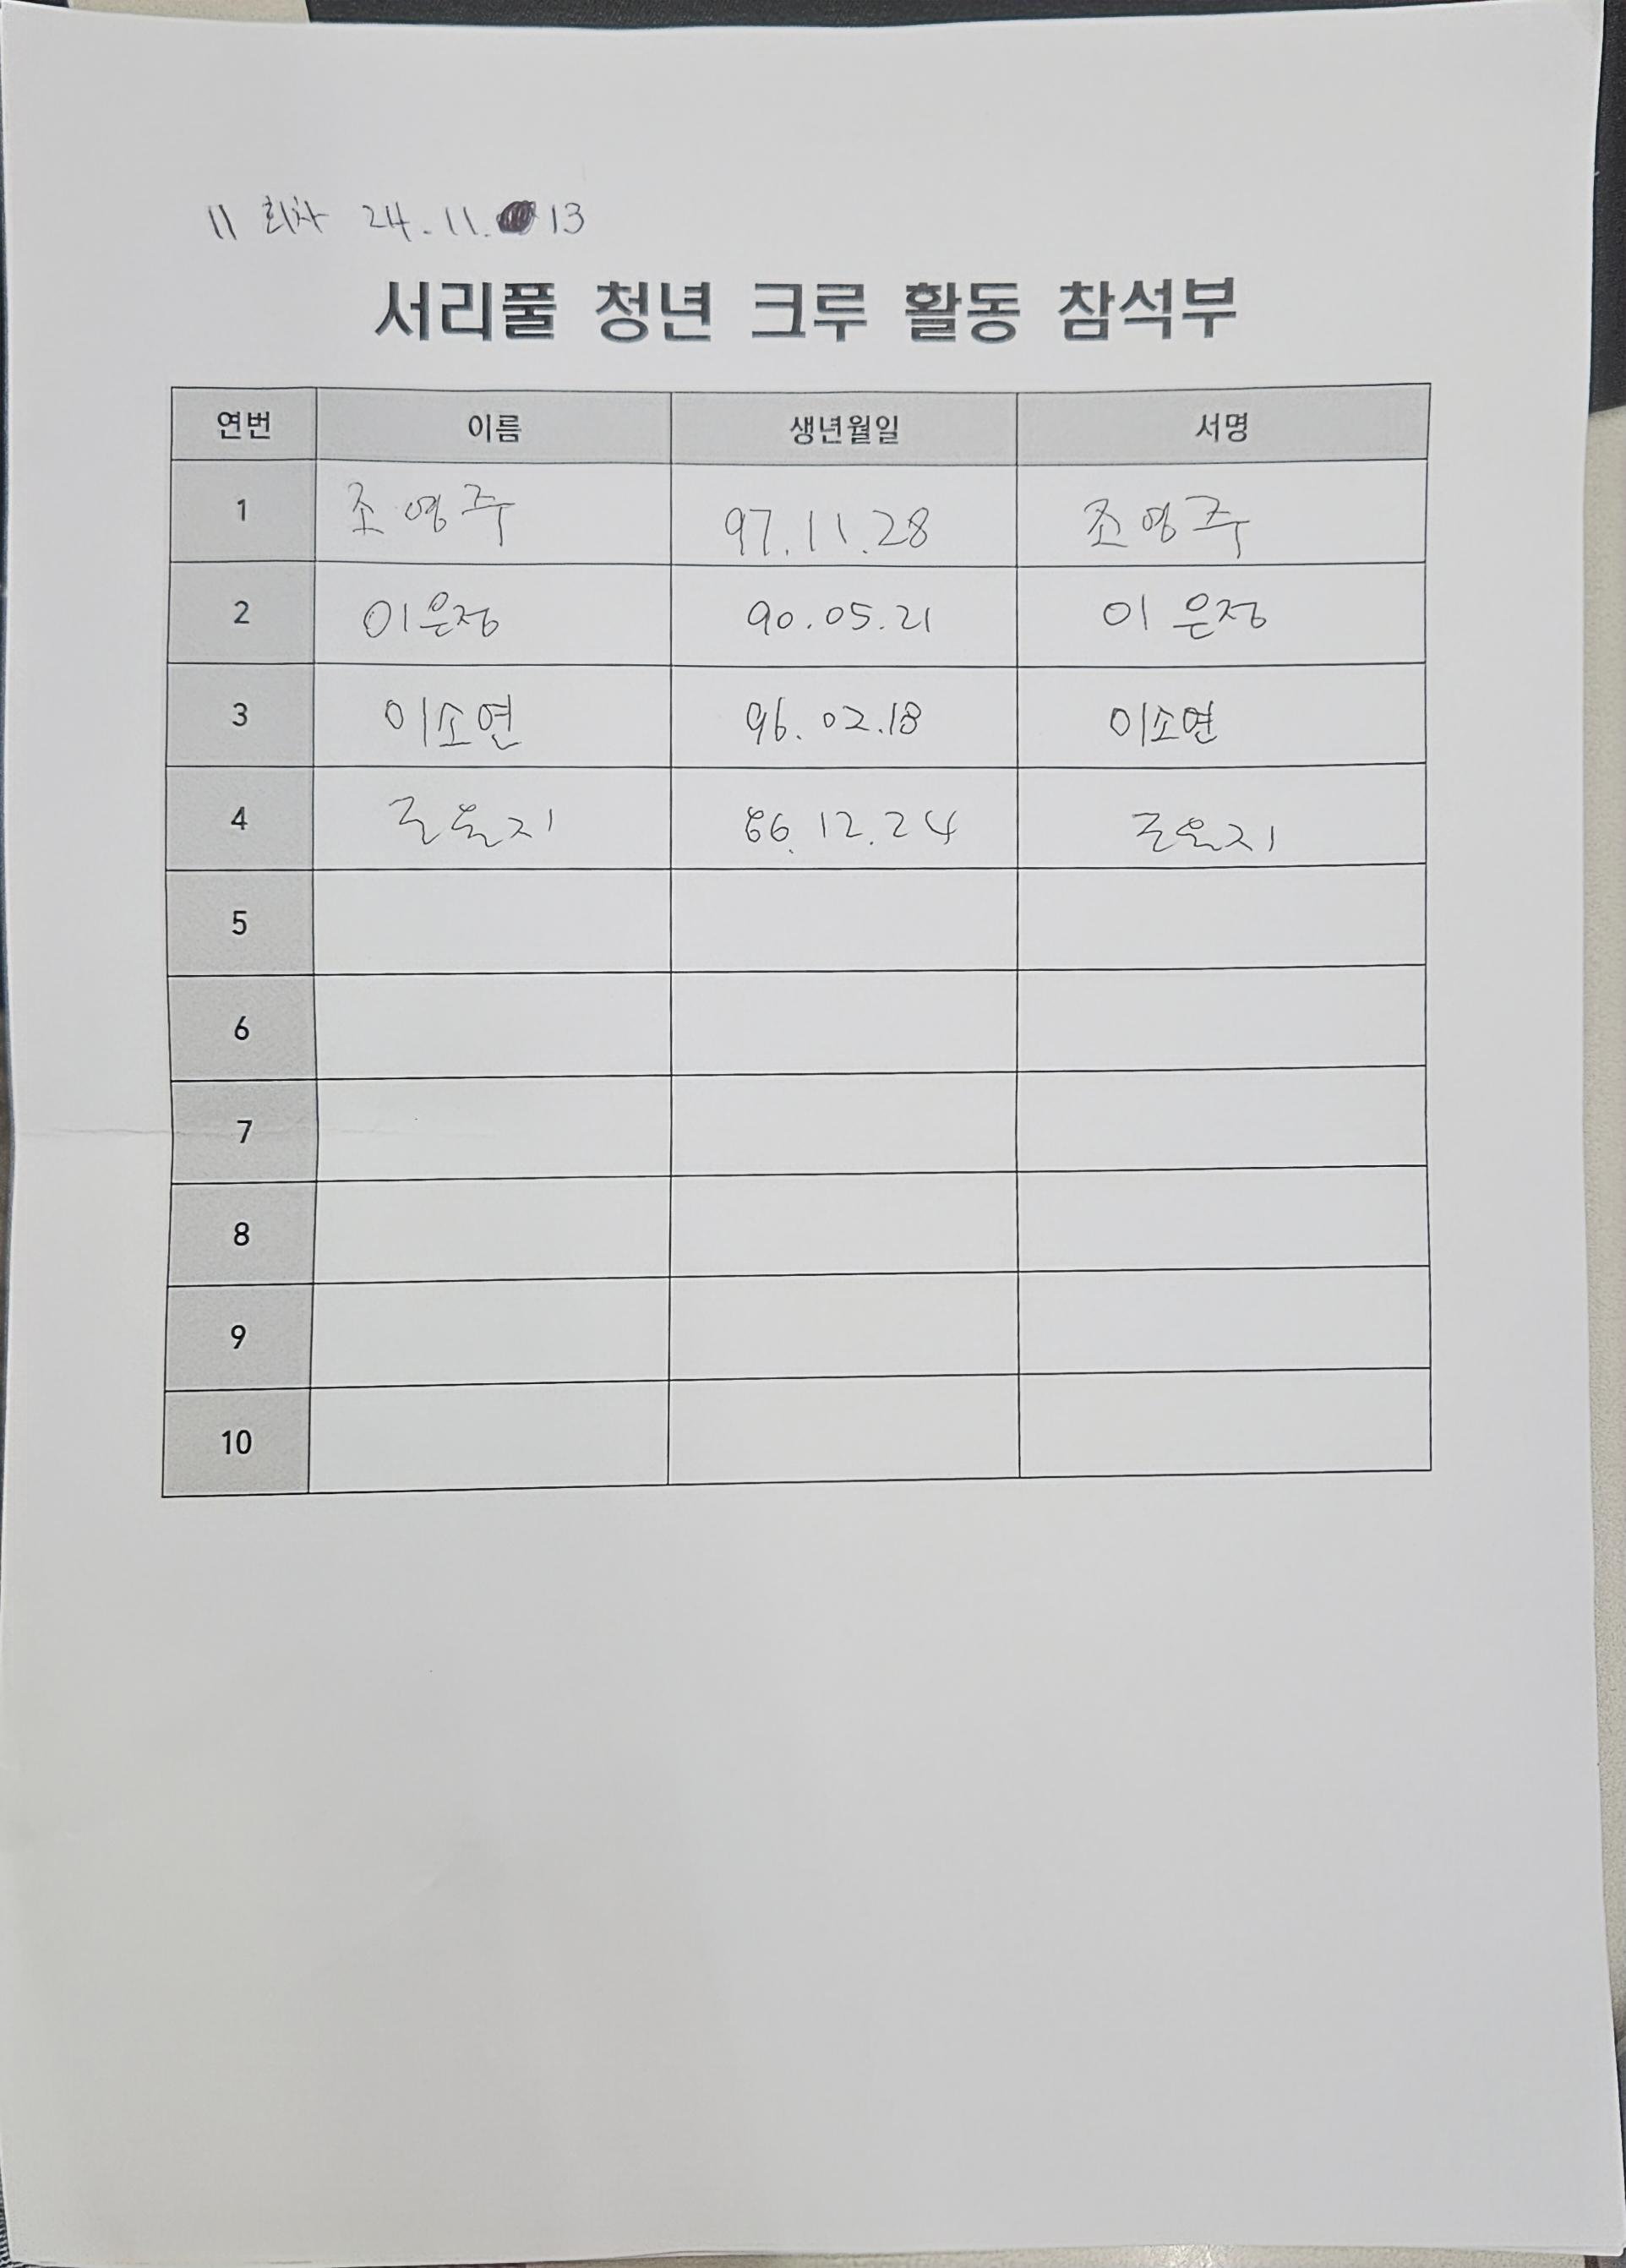 11 회차 24.11. 13
서리풀 청년 크루 활동 참석부
연번 이름 생년월일 서명
1 조영주 97.11.28 조영주
2 이은정 90.05.21 이은정
3 이소연 96.02.18 이소연
4 86.12.24
5
6
7
8
9
10